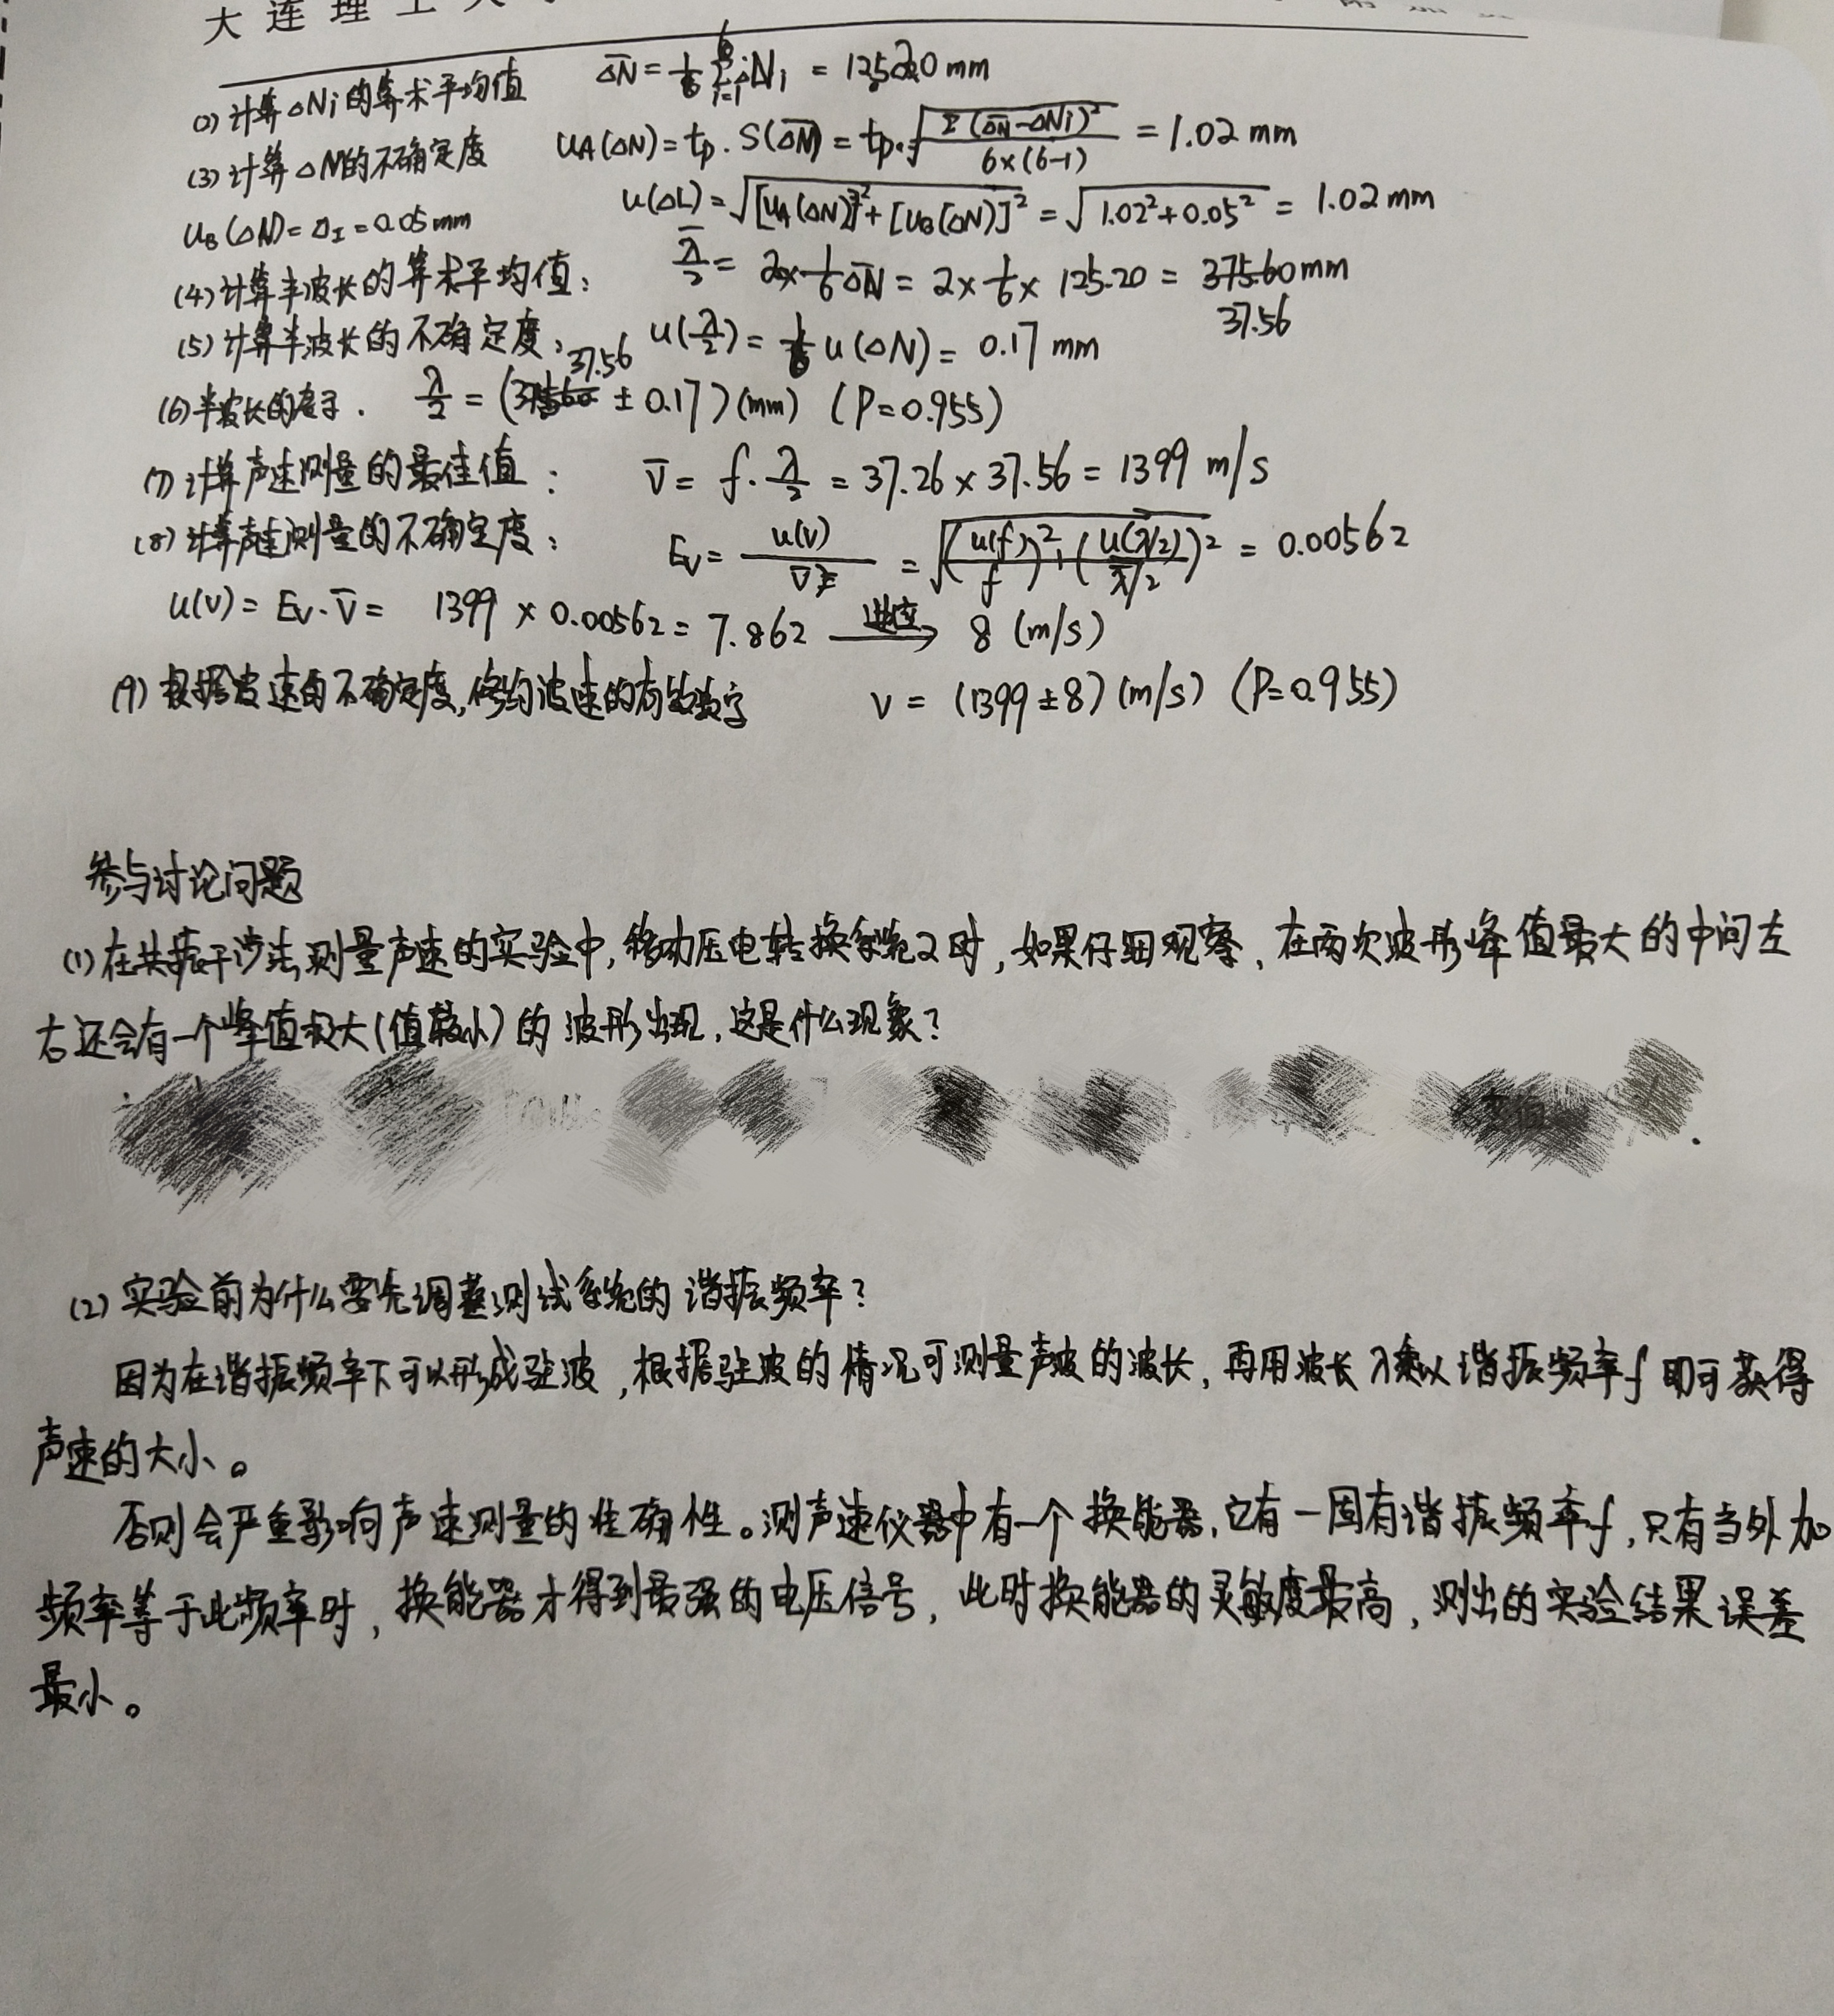 大连理工大
(2) 计算△Ni的算术平均值 $\overline{\triangle N}=\frac{1}{6}\sum_{i=1}^{6}\triangle N_i=125.20mm$
(3) 计算△N的不确定度 $U_A(\triangle N)=t_p\cdot S(\overline{\triangle N})=t_p\cdot\sqrt{\frac{\Sigma(\overline{\triangle N}-\triangle N_i)^2}{6\times(6-1)}}=1.02mm$
$U_B(\triangle N)=\triangle_I=0.05mm$ $u(\triangle L)=\sqrt{[U_A(\triangle N)]^2+[U_B(\triangle N)]^2}=\sqrt{1.02^2+0.05^2}=1.02mm$
(4) 计算半波长的算术平均值: $\frac{\overline{\lambda}}{2}=2\times\frac{1}{6}\overline{\triangle N}=2\times\frac{1}{6}\times125.20=375.60mm$
37.56
(5) 计算半波长的不确定度: $u(\frac{\lambda}{2})=\frac{1}{6}u(\triangle N)=0.17mm$
37.56
(6) 半波长的表示. $\frac{\lambda}{2}=($ $\pm0.17)(mm)$ (P=0.955)
(7) 计算声速测量的最佳值: $\overline{V}=f\cdot\frac{\lambda}{2}=37.26\times37.56=1399m/s$
(8) 计算声速测量的不确定度: $E_V=\frac{u(V)}{\overline{V}}=\sqrt{(\frac{u(f)}{f})^2+(\frac{u(\lambda/2)}{\overline{\lambda}/2})^2}=0.00562$
$u(V)=E_V\cdot\overline{V}=1399\times0.00562=7.862\xrightarrow{进位}8(m/s)$
(9) 根据波速的不确定度,修约波速的有效数字 V=(1399±8)(m/s) (P=0.955)
参与讨论问题
(1) 在共振干涉法测量声速的实验中,移动压电转换系统2时,如果仔细观察,在两次波形峰值最大的中间左
右还会有一个峰值极大(值较小)的波形出现,这是什么现象?
(2) 实验前为什么要先调整测试系统的谐振频率?
因为在谐振频率下可以形成驻波,根据驻波的情况可测量声波的波长,再用波长λ乘以谐振频率f即可获得
声速的大小。
否则会严重影响声速测量的准确性。测声速仪器中有一个换能器,它有一固有谐振频率f,只有当外加
频率等于此频率时,换能器才得到最强的电压信号,此时换能器的灵敏度最高,测出的实验结果误差
最小。